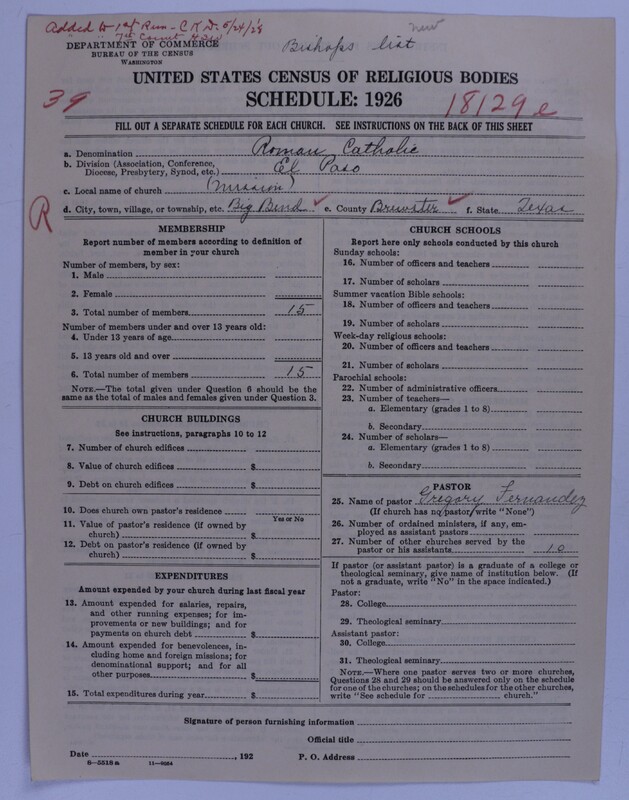 Added to 1st Run - C.K.D. 5/24/28
7th Count
DEPARTMENT OF COMMERCE
BUREAU OF THE CENSUS
WASHINGTON
Bishops list
new
UNITED STATES CENSUS OF RELIGIOUS BODIES
SCHEDULE: 1926
39
18129e
FILL OUT A SEPARATE SCHEDULE FOR EACH CHURCH. SEE INSTRUCTIONS ON THE BACK OF THIS SHEET
a. Denomination Roman Catholic
b. Division (Association, Conference,
Diocese, Presbytery, Synod, etc.) El Paso
c. Local name of church (mission)
R
d. City, town, village, or township, etc. Big Bend ✓ e. County Brewster ✓ f. State Texas
MEMBERSHIP
Report number of members according to definition of
member in your church
Number of members, by sex:
1. Male
2. Female
3. Total number of members 15
Number of members under and over 13 years old:
4. Under 13 years of age
5. 13 years old and over
6. Total number of members 15
NOTE.—The total given under Question 6 should be
same as the total of males and females given under Question 3.
CHURCH BUILDINGS
See instructions, paragraphs 10 to 12
7. Number of church edifices
8. Value of church edifices $
9. Debt on church edifices $
10. Does church own pastor's residence
Yes or No
11. Value of pastor's residence (if owned by
church) $
12. Debt on pastor's residence (if owned by
church) $
EXPENDITURES
Amount expended by your church during last fiscal year
13. Amount expended for salaries, repairs,
and other running expenses; for im-
provements or new buildings; and for
payments on church debt $
14. Amount expended for benevolences, in-
cluding home and foreign missions; for
denominational support; and for all
other purposes $
15. Total expenditures during year $
CHURCH SCHOOLS
Report here only schools conducted by this church
Sunday schools:
16. Number of officers and teachers
17. Number of scholars
Summer vacation Bible schools:
18. Number of officers and teachers
19. Number of scholars
Week-day religious schools:
20. Number of officers and teachers
21. Number of scholars
Parochial schools:
22. Number of administrative officers
23. Number of teachers—
a. Elementary (grades 1 to 8)
b. Secondary
24. Number of scholars—
a. Elementary (grades 1 to 8)
b. Secondary
PASTOR
25. Name of pastor Gregory Fernandez
(If church has no pastor, write "None")
26. Number of ordained ministers, if any, em-
ployed as assistant pastors
27. Number of other churches served by the
pastor or his assistants 10
If pastor (or assistant pastor) is a graduate of a college or
theological seminary, give name of institution below. (If
not a graduate, write "No" in the space indicated.)
Pastor:
28. College
29. Theological seminary
Assistant pastor:
30. College
31. Theological seminary
NOTE.—Where one pastor serves two or more churches,
Questions 28 and 29 should be answered only on the schedule
for one of the churches; on the schedules for the other churches,
write "See schedule for church."
Signature of person furnishing information
Official title
Date , 192 P. O. Address
8—5518a 11—9684